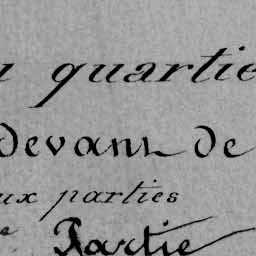 quartie
devant de
ux parties
e Partie